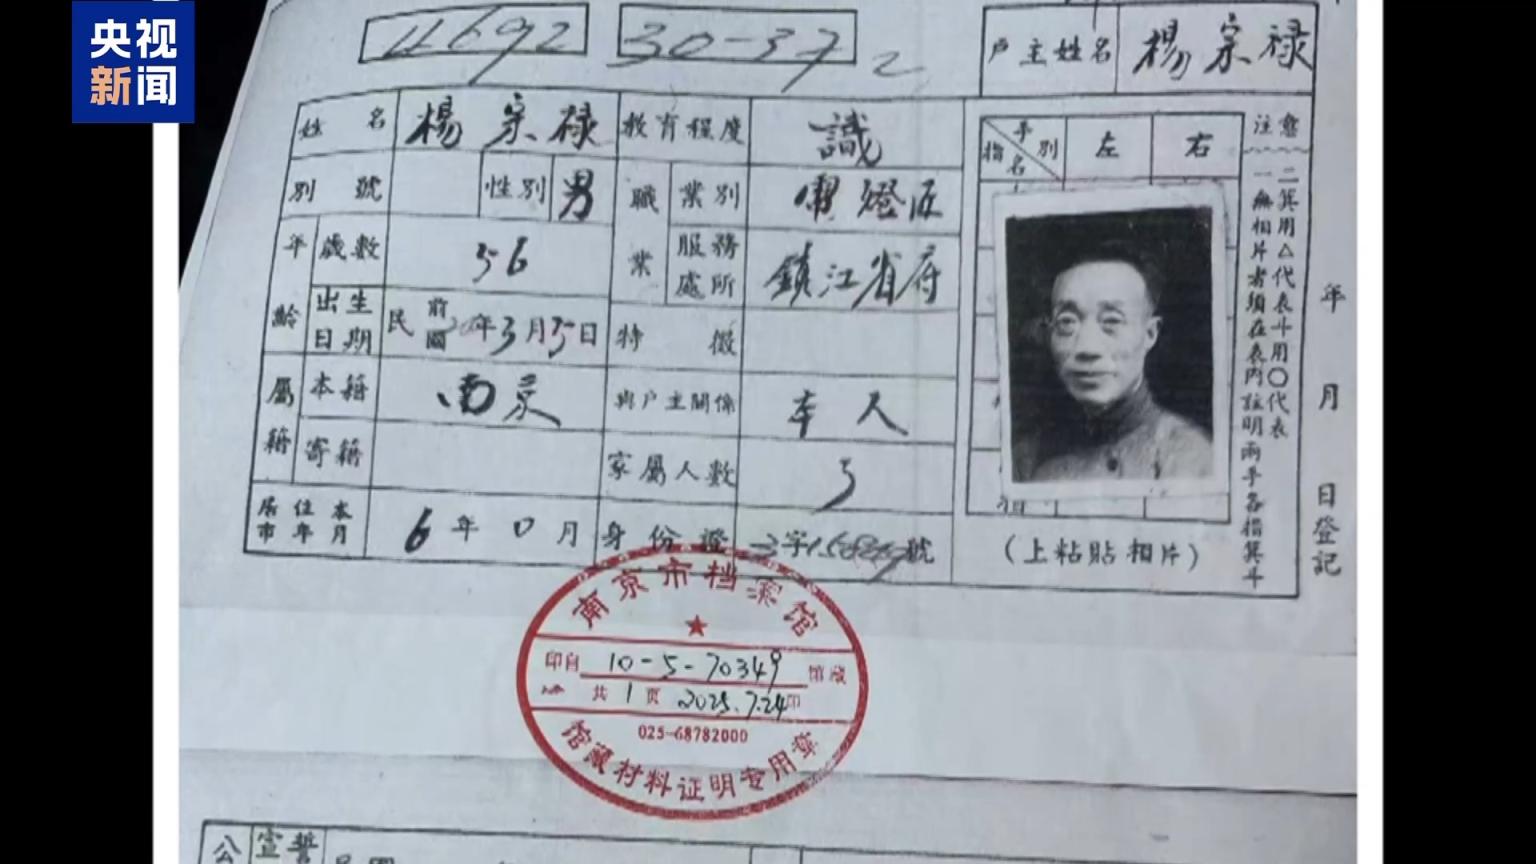 央视
新闻
11692
30-37
2
户主姓名 楊宗禄
姓名 楊宗禄 教育程度 識
別號 性別 男 職業 業別 電燈匠
年齡 歲數 56 服務處所 鎮江省府
出生日期 民前國 年3月 日 特徵
屬籍 本籍 南京 與戶主關係 本人
寄籍 家屬人數 3
居住本市年月 6年0月 身份證 字 號
手別 指名 左 右
(上粘貼相片)
注意
一無相片者須在表內註明兩手各指箕斗
二箕用△代表斗用〇代表
年 月 日登記
南京市档案馆
印自 10-5-70349 馆藏
共1页 2025.7.24印
025-68782000
馆藏材料证明专用章
公 宣誓